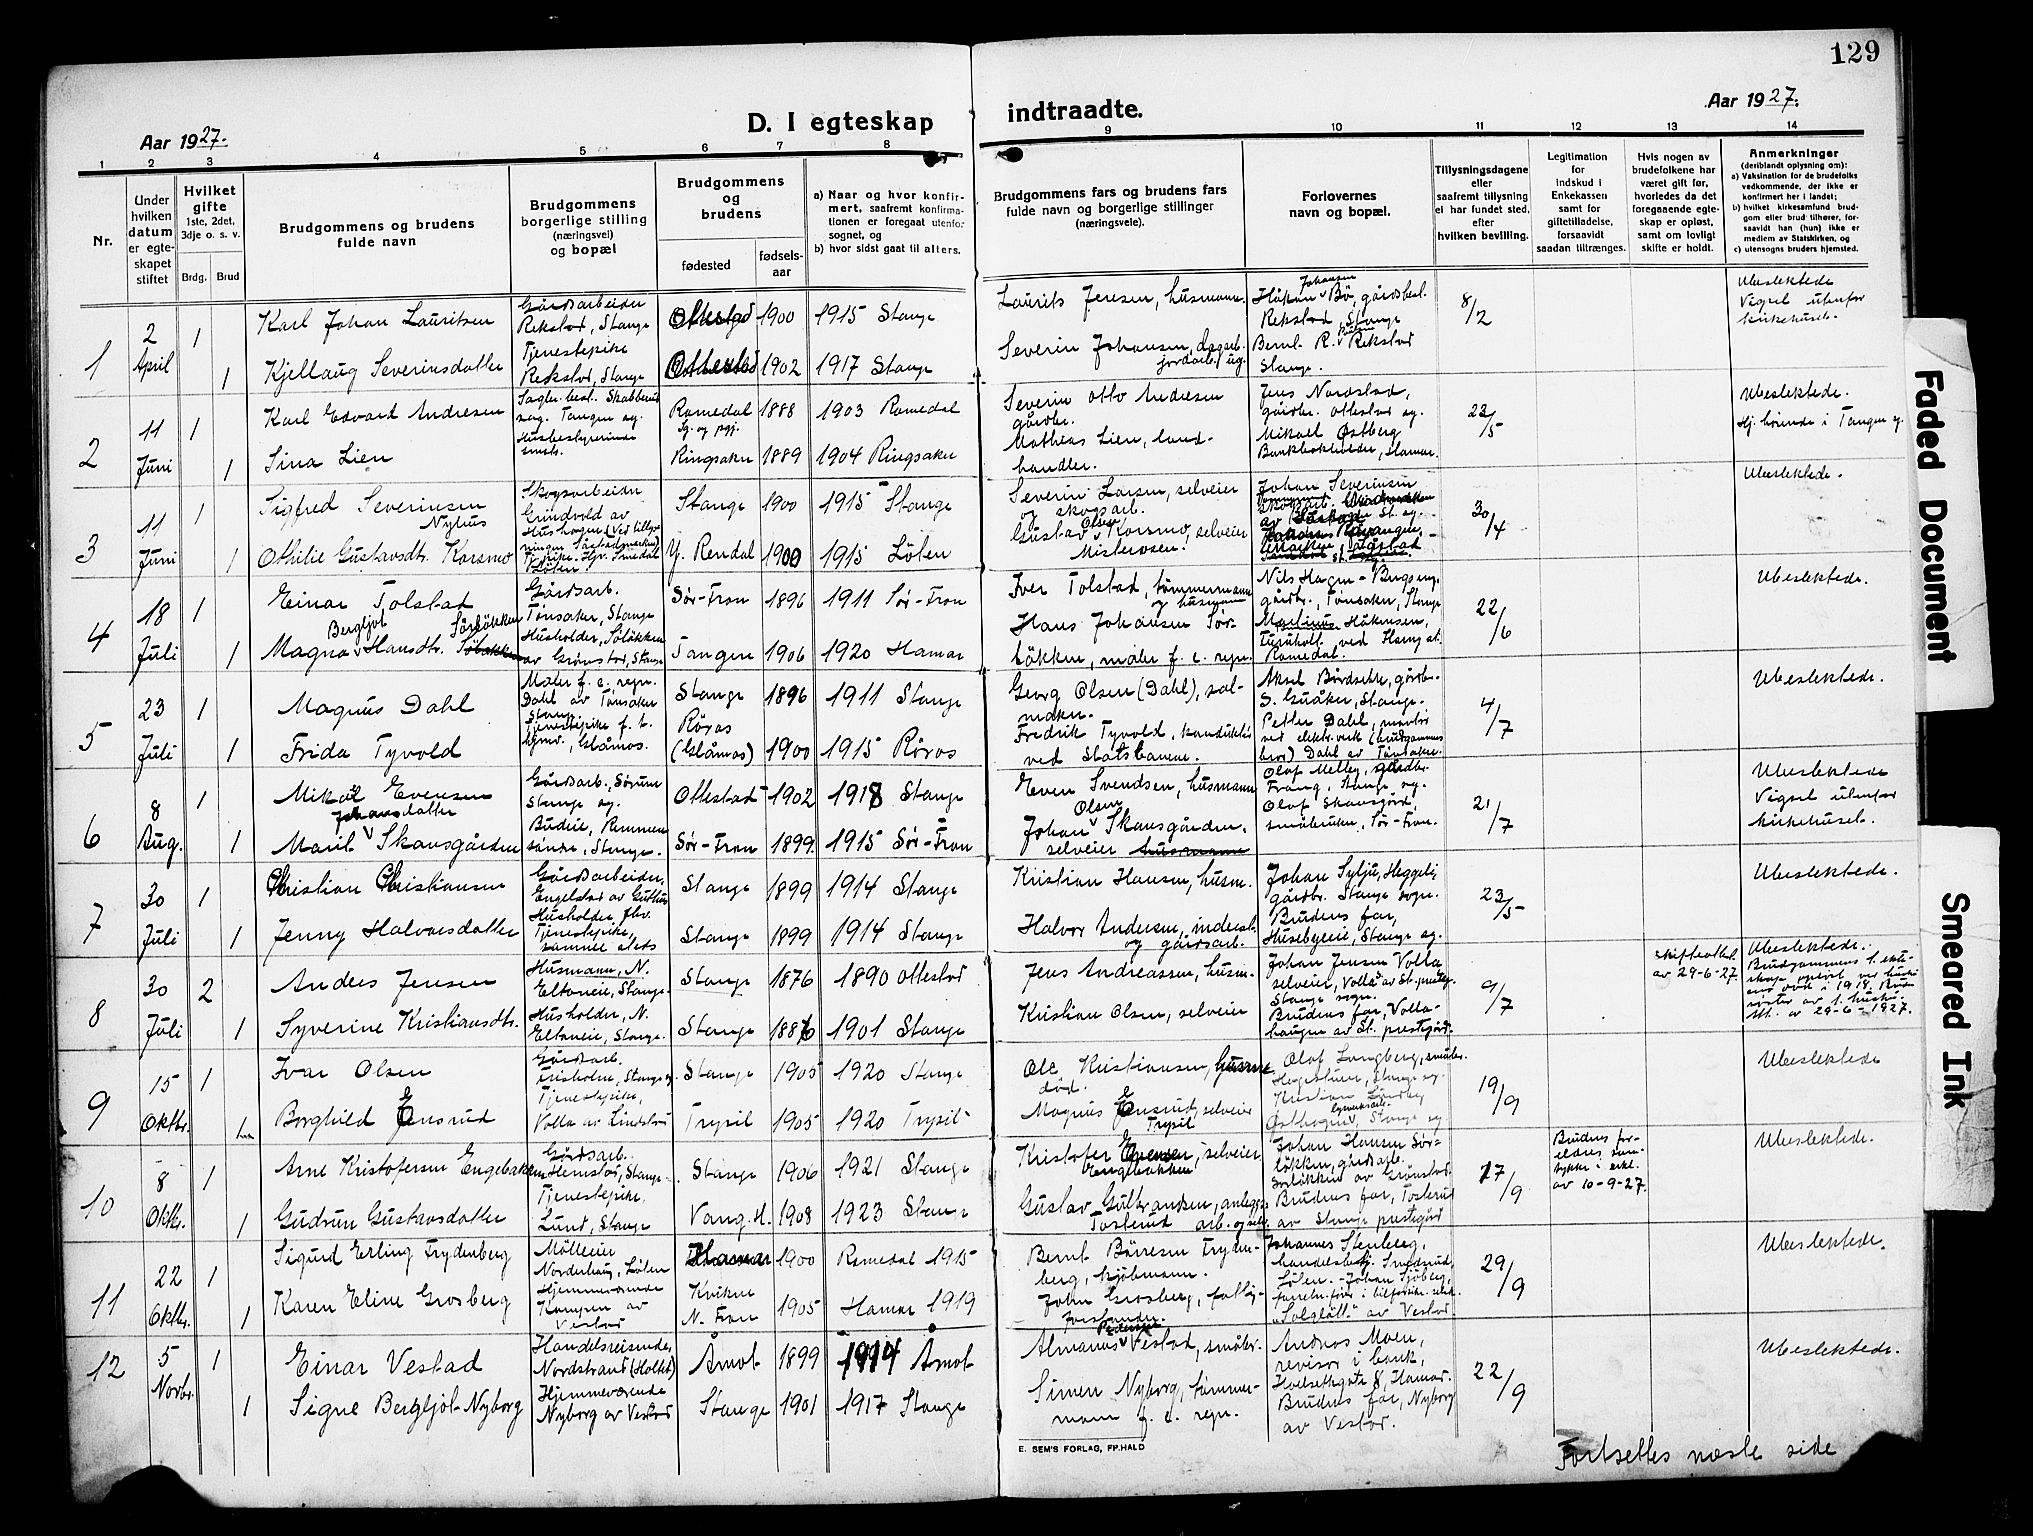 129
Aar 1927.
D. I egteskap indtraadte.
Aar 1927.
1 2 3 4 5 6 7 8 9 10 11 12 13 14
Nr.
Under hvilken datum er egteskapet stiftet
Hvilket gifte
1ste, 2det, 3dje o. s. v.
Brdg. Brud
Brudgommens og brudens fulde navn
Brudgommens borgerlige stilling (næringsvei) og bopæl
Brudgommens og brudens
fødested
fødselsaar
a) Naar og hvor konfirmert, saafremt konfirmationen er foregaat utenfor sognet, og
b) hvor sidst gaat til alters.
Brudgommens fars og brudens fars fulde navn og borgerlige stillinger (næringsveie).
Forlovernes navn og bopæl.
Tillysningsdagene eller saafremt tillysning ei har fundet sted, efter hvilken bevilling.
Legitimation for indskud i Enkekassen samt for giftetilladelse, forsaavidt saadan tiltrænges.
Hvis nogen av brudefolkene har været gift før, hvorledes da det foregaaende egteskap er opløst, samt om lovligt skifte er holdt.
Anmerkninger
(deriblandt oplysning om):
a) Vaksination for de brudefolks vedkommende, der ikke er konfirmert her i landet;
b) hvilket kirkesamfund brudgom eller brud tilhører, forsaavidt han (hun) ikke er medlem av Statskirken, og
c) utensogns bruders hjemsted.
1
2 April
1
Karl Johan Lauritsen
Gårdsarbeider Rekstad, Stange
Ottestad
1900
1915 Stange
Laurits Jensen, husmann.
Håkan Johansen Bø, gårdbest. Rekstad Stange
8/2
Ubeslektede Vigsel utenfor kirkehuset.
1
Kjellaug Severinsdatter
Tjenestepike Rekstad, Stange
Ottestad
1902
1917 Stange
Severin Johansen, dagarb. jordarb. ug.
Bernt R. Rekstad Stange.
2
11 Juni
1
Karl Edvard Andresen
Sagbr. best. Tangen sg.
Romedal
1888
1903 Romedal
Severin Otto Andresen gårdbr.
Jens Nordstad, gårdbr. Ottestad sg.
23/5
Ubeslektede.
Hj. hørende i Tangen sg.
1
Sina Lien
Husbestyrerinde smsts.
Ringsaker
1889
1904 Ringsaker
Mathias Lien, landhandler.
Mikael Østberg Bankbokholder, Hamar.
3
11 Juni
1
Sigfred Severinsen Nyhus
Skogsarbeider Grindvold av
Stange
1900
1915 Stange
Severin Larsen, selveier og skogsarb.
Johan Severinsen
30/4
Ubeslektede.
1
Othilie Gustavsdtr. Korsmo
Løten
Y. Rendal
1900
1915 Løten
Gustav Olsen Korsmo, selveier Misterosen.
4
18 Juli
1
Einar Tolstad
Gårdsarb. Tønsaker, Stange
Sør-Fron
1896
1911 Sør-Fron
Iver Tolstad, tømmermann og husmann
Nils Hagen - Bugseng. gårdbr., Tønsaker, Stange
22/6
Ubeslektede.
1
Magna Bergljot Hansdtr. Sørløkken
Husholder, Søløkken av Grønstad, Stange
Tangen
1906
1920 Hamar
Hans Johansen Sørløkken, maler f. e. regn.
Martinus Håkensen, Furuholt, ved Hamg st. Romedal.
5
23 Juli
1
Magnus Dahl
Maler f. e. regn. Dahl av Tønsaker Stange
Stange
1896
1911 Stange
Georg Olsen (Dahl), salmaker.
Aksel Bårdseth, gårdbr. S. Guåker, Stange.
4/7
Ubeslektede.
1
Frida Tyvold
Tjenestepike f. t. hjmv., Glåmos.
Røros (Glåmos)
1900
1915 Røros
Fredrik Tyvold, konduktør ved Statsbanene.
Petter Dahl, montør ved elektr. verk (brudgommens bror) Dahl av Tønsaker.
6
8 Aug.
1
Mikal Evensen
Gårdsarb., Sørum Stange sg.
Ottestad
1902
1918 Stange
Even Svendsen, husmann
Olaf Melby, gårdbr. Frang, Stange sg.
21/7
Ubeslektede Vigsel utenfor kirkehuset.
1
Marit Johansdatter Skansgården
Budeie, Rommen søndre, Stange.
Sør-Fron
1899
1915 Sør-Fron
Johan Olsen Skansgården, selveier husmann
Olaf Skansgård, småbruker, Sør-Fron.
7
30 Juli
1
Christian Christiansen
Gårdsarbeider, Engelstad av Guthus
Stange
1899
1914 Stange
Kristian Hansen, husm.
Johan Sylju, Heggeli, gårdbr. Stange sogn.
23/5
Ubeslektede.
1
Jenny Halvorsdatter
Husholder, fhv. Tjenestepike, samme steds
Stange
1899
1914 Stange
Halvor Andersen, inderst og gårdsarb.
Brudens far, Husebyeie, Stange sg.
8
30 Juli
2
Anders Jensen
Husmann, N. Eltoneie, Stange.
Stange
1876
1890 Ottestad
Jens Andreassen, husm.
Johan Jensen Volla selveier, Volla av St. prestg. Stange sogn.
9/7
skifteattest av 29-6-27.
Ubeslektede. Brudgommens 1. ekteskap opløst ved hustruens død i 1918.
av 29-6-1927.
1
Syverine Kristiansdtr.
Husholder, N. Eltoneie, Stange.
Stange
1886
1901 Stange
Kristian Olsen, selveier
Brudens far, Vollahaugen av St. prestegård.
9
15 Oktbr.
1
Ivar Olsen
Gårdsarb. Frisholm, Stange sg.
Stange
1905
1920 Stange
Ole Kristiansen, husm. død.
Olaf Langberg, småbr. Hegestuen, Stange sg.
19/9
Ubeslektede
1
Borghild Ensrud
Tjenestepike, Volla av Lindstad
Trysil
1905
1920 Trysil
Magnus Ensrud, selveier Trysil
Kristian Lundby Østhagen, Stange sg.
10
8 Oktbr.
1
Arne Kristofersen Engebakken
Gårdsarb. Hemstad, Stange.
Stange
1906
1921 Stange
Kristofer Evensen, selveier Engebakken,
Johan Hansen Sørløkken, gårdsarb. Sørløkken av Grønstad.
17/9
Brudens foreldres samtykke i erkl. av 10-9-27.
Ubeslektede.
1
Gudrun Gustavsdatter
Tjenestepike, Lund, Stange
Vang. H.
1908
1923 Stange
Gustav Gulbrandsen, anleggsarb. og selv. Tosterud
Brudens far, Tosterud av Stange prestgård
11
22 Oktbr.
1
Sigurd Erling Frydenberg
Mølleeier Norderhaug, Løten
Hamar
1900
Romedal 1915
Bernt Børresen Frydenberg, kjøbmann.
Johannes Stenberg, handelsbestj. Smedsrud, Løten.
29/9
Ubeslektede.
1
Karen Eline Grosberg
Hjemmeværende Kampen av Vestad
Kvikne N. Fron
1905
Hamar 1919
John Grosberg, fattigforstander.
Johan Sjøberg, "Solgløtt" av Vestad.
12
5 Novbr.
1
Einar Vestad
Handelsreisende, Nordstrand (Holtet)
Åmot
1899
1914 Åmot
Almanus Pedersen Vestad, småbr.
Andreas Moen, revisor i bank, Holsethgate 8, Hamar.
22/9
Ubeslektede.
1
Signe Bergljot Nyborg
Hjemmeværende Nyborg av Vestad
Stange
1901
1917 Stange
Simen Nyborg, tømmermann f. e. regn.
Brudens far, Nyborg av Vestad.
E. SEM'S FORLAG, FP.HALD
Fortsettes næste side
Faded Document
Smeared Ink